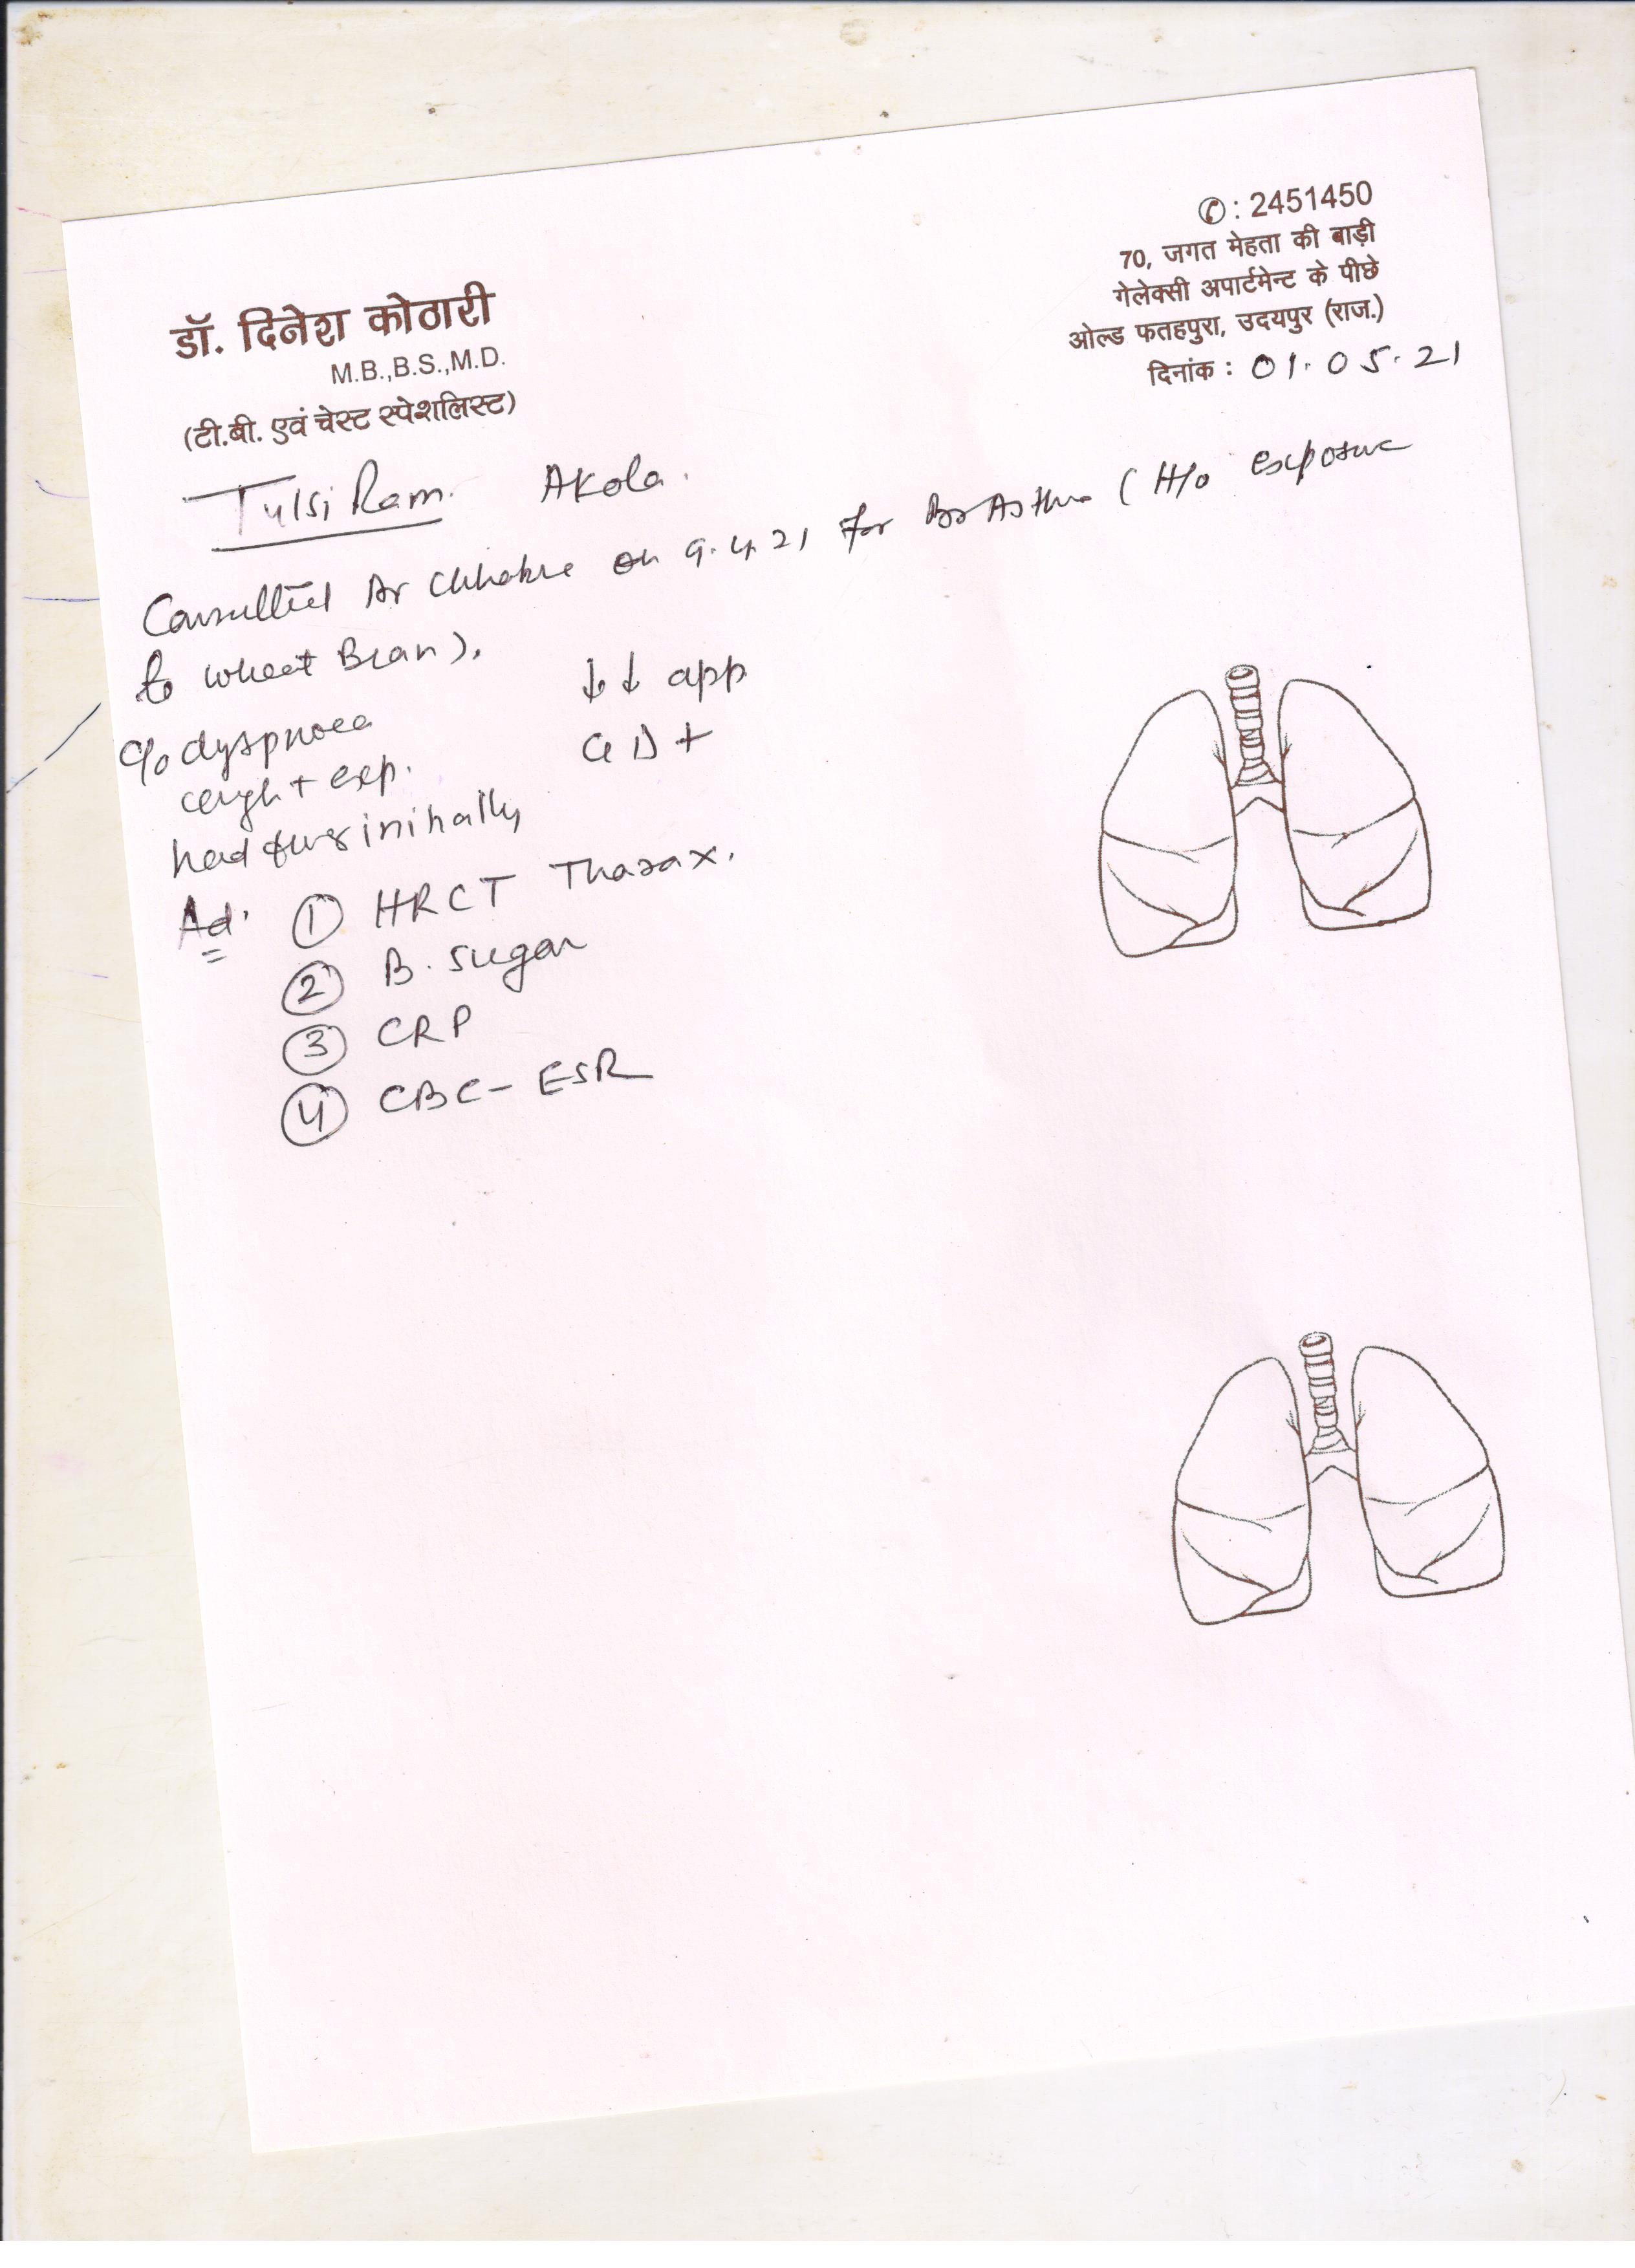 ✆: 2451450
70, जगत मेहता की बाड़ी
गेलेक्सी अपार्टमेन्ट के पीछे
ओल्ड फतहपुरा, उदयपुर (राज.)
दिनांक : 01.05.21
डॉ. दिनेश कोठारी
M.B.,B.S.,M.D.
(टी.बी. एवं चेस्ट स्पेशलिस्ट)
Tulsi Ram. Akola.
Consulted Dr on 9.4.21 for Br Asthma (H/o exposure
to wheat Bran).
c/o dyspnoea ↓↓ app
cough + exp. GD+
had fever initially
Ad. ① HRCT Thorax.
② B. sugar
③ CRP
④ CBC - ESR